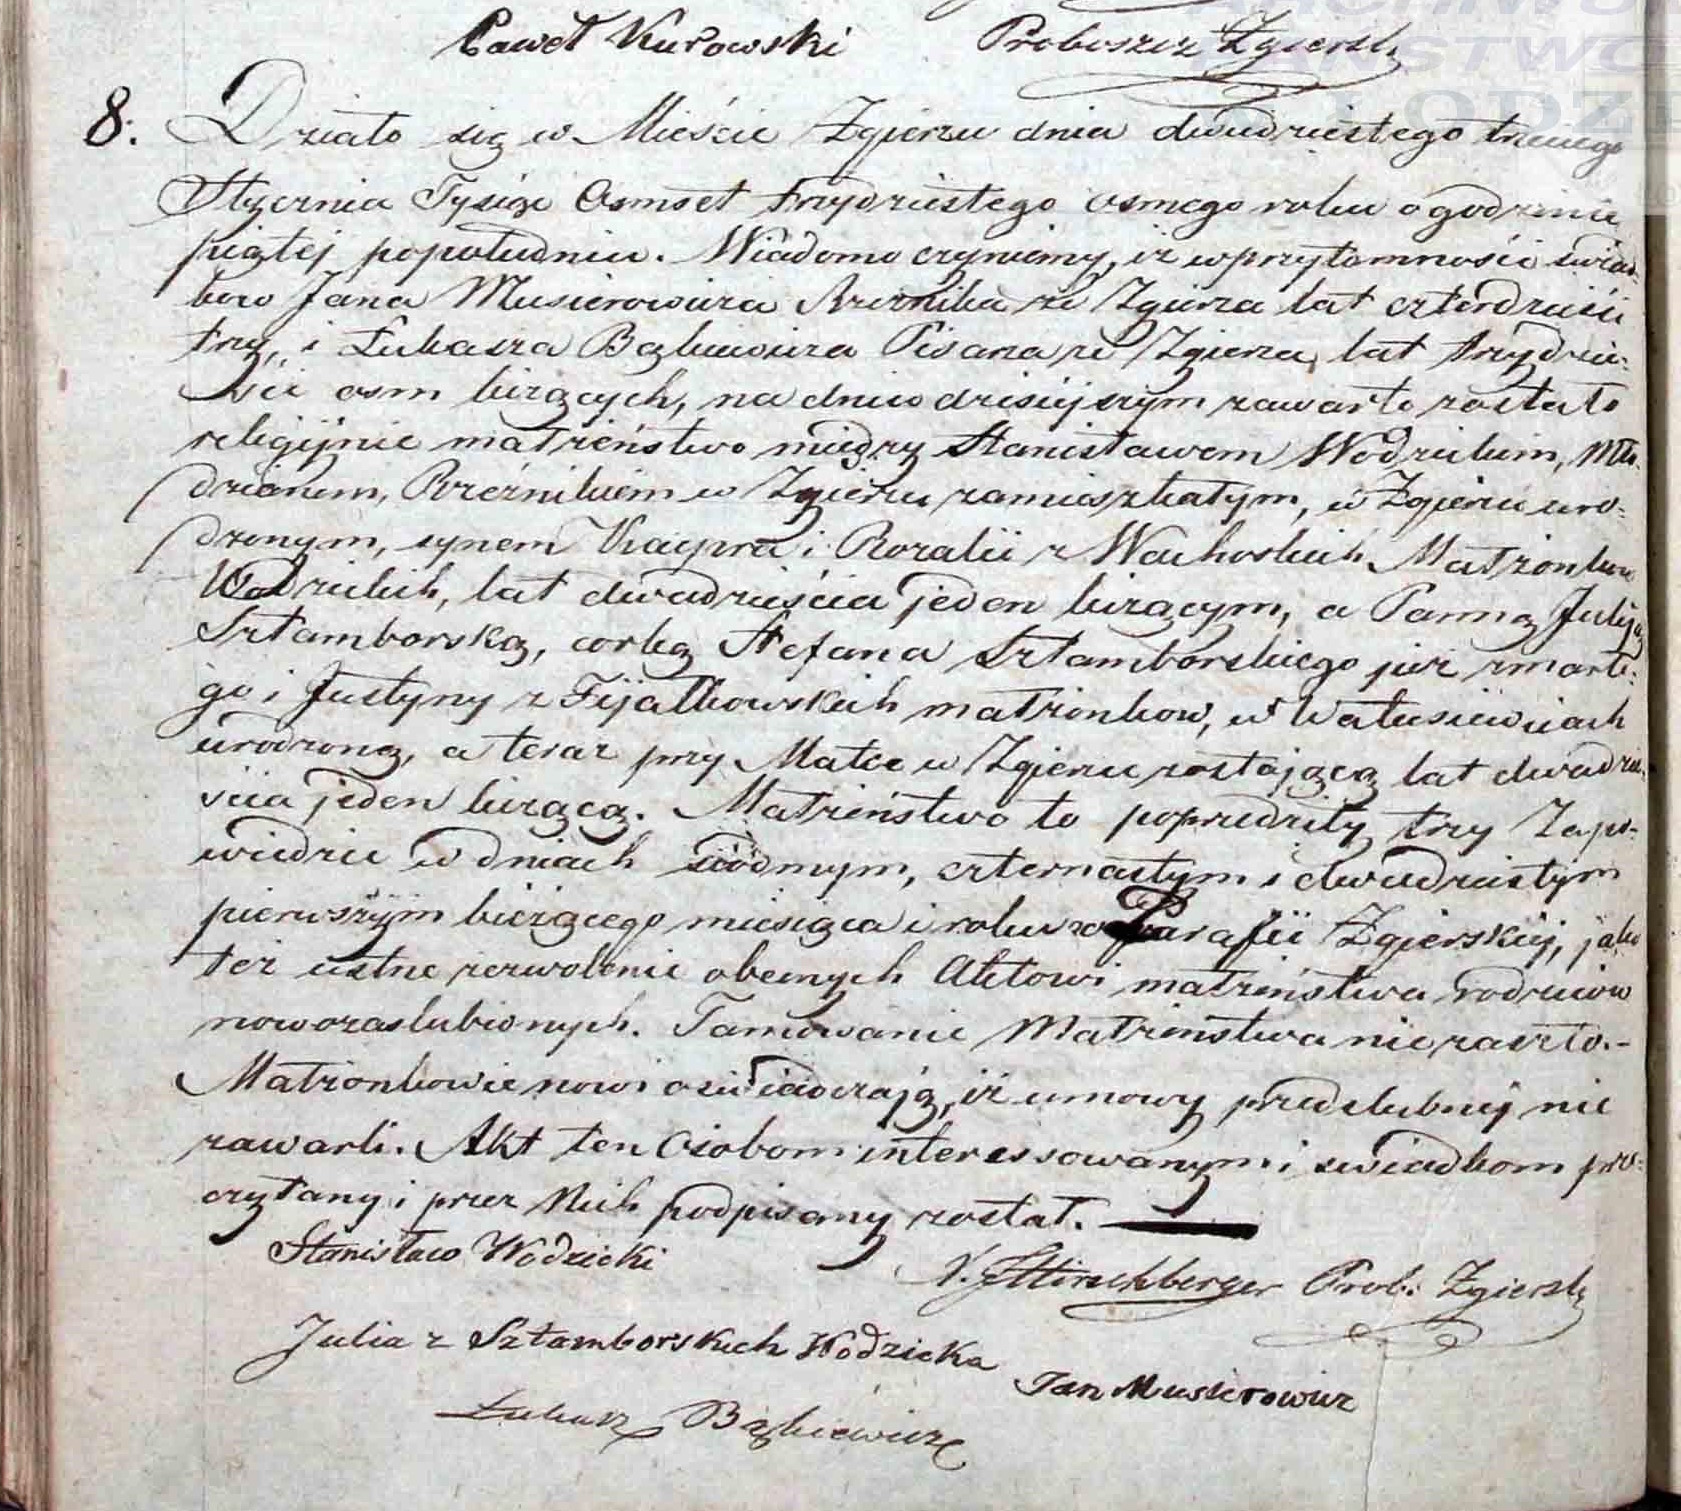 ARCHIWUM
PAŃSTWO
ŁODZI
Paweł Kurowski Proboszcz Zgierski
8. Działo się w Mieście Zgierzu dnia dwudziestego trzeciego
Stycznia Tysiąc Osmset trzydziestego osmego roku o godzinie
piątej popołudniu. Wiadomo czyniemy, iż w przytomności świad-
kow Jana Musierowicza Rzeznika ze Zgierza lat czterdzieści
trzy, i Łukasza Bąkiewicza Pisarza ze Zgierza, lat trzydzie-
ści osm liczących, na dniu dzisiejszym zawarte zostało
religijnie małżeństwo między Stanisławem Wodzickim, Mło-
dzianem, Rzeźnikiem w Zgierzu zamieszkałym, w Zgierzu uro-
dzonym, synem Kacpra i Rozalii z Wachoskich Małżonkow
Wodzickich, lat dwadzieścia jeden liczącym, a Panną Juliją
Sztamborską, corką Stefana Sztamborskiego już zmarłe-
go i Justyny z Fijałkowskich małżonkow, w
urodzoną, a teraz przy Matce w Zgierzu zostającą lat dwadzie-
ścia jeden liczącą. Małżeństwo to poprzedziły trzy Zapo-
wiedzie w dniach siódmym, czternastym i dwudziestym
pierwszym bieżącego miesiąca i roku w Parafii Zgierskiej, jako
też ustne zezwolenie obecnych Aktowi małżeństwa rodziców
nowozaslubionych. Tamowanie Małżeństwa nie zaszło.-
Małżonkowie nowi oświadczają, iż umowy przedslubnej nie
zawarli. Akt ten Osobom interessowanym i swiadkom prze-
czytany i przez Nich podpisany został.
Stanisław Wodzicki
Hirschberger Prob: Zgierski
Julia z Sztamborskich Wodzicka
Jan Musierowicz
Łukasz Bąkiewicz